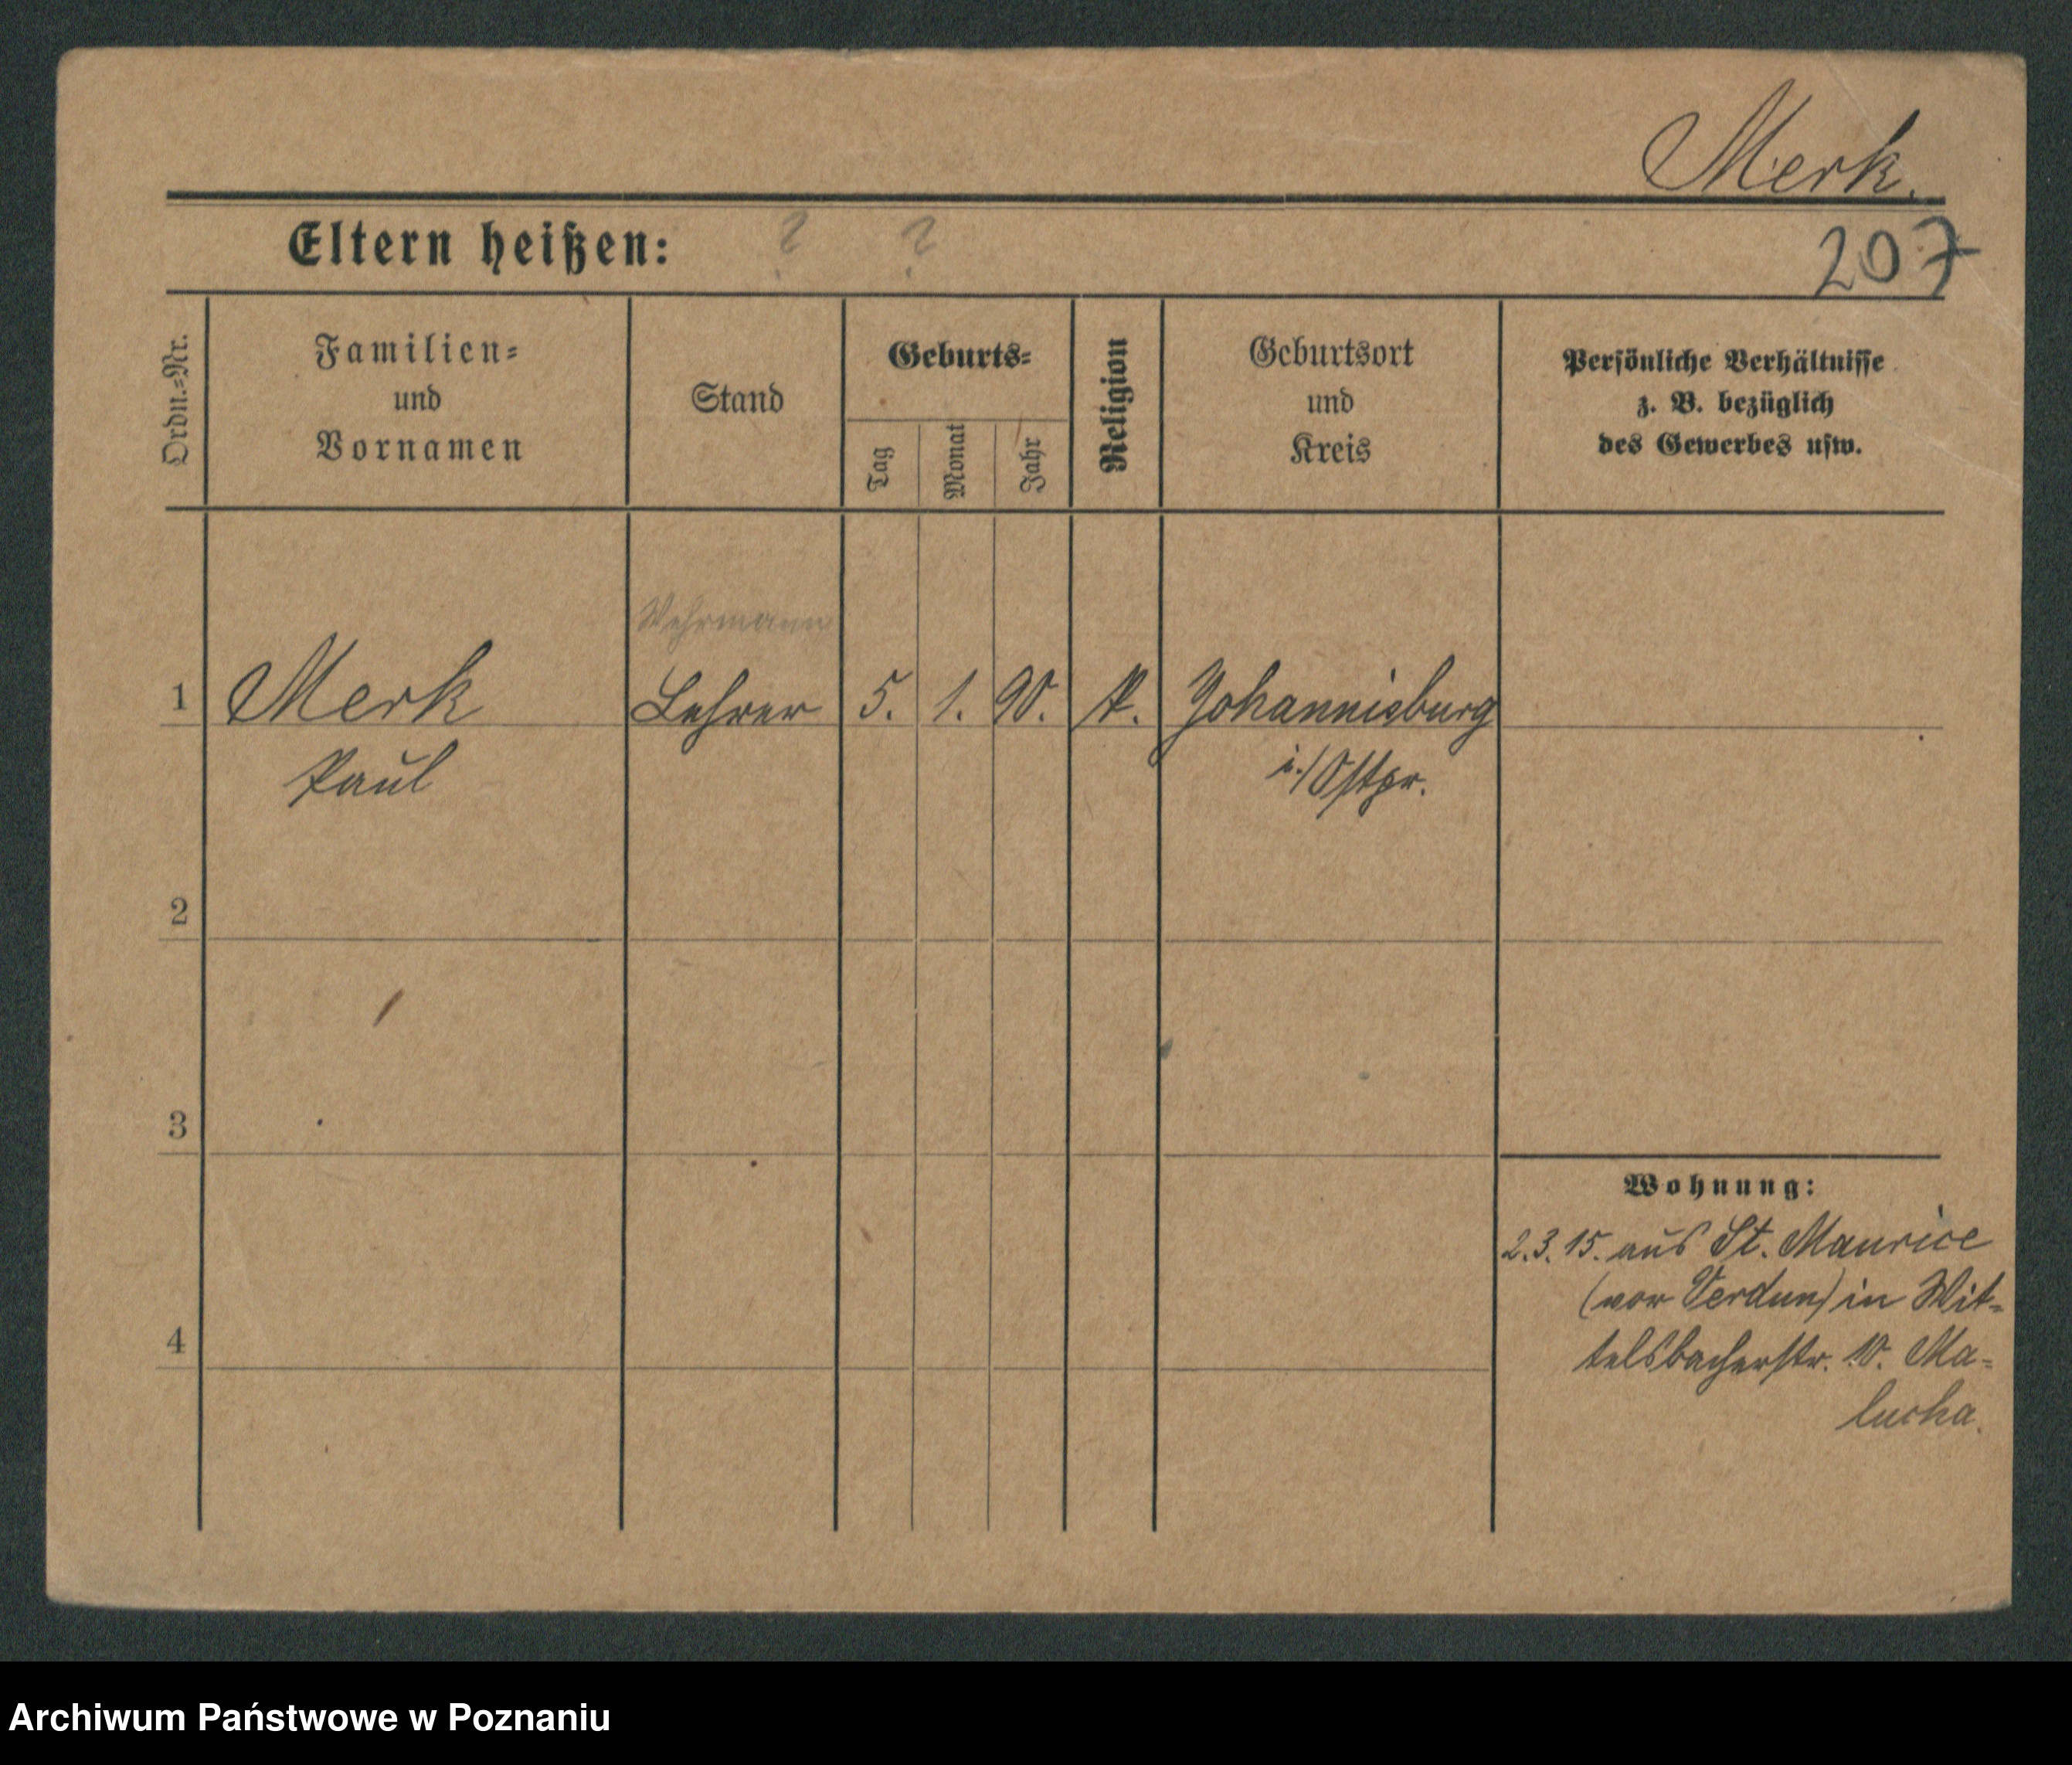 Merk.
Eltern heißen: ? ?
207
Ordn.=Nr.
Familien=
und
Vornamen
Stand
Geburts=
Tag
Monat
Jahr
Religion
Geburtsort
und
Kreis
Persönliche Verhältnisse
z. B. bezüglich
des Gewerbes usw.
Wehrmann
1 Merk Lehrer 5. 1. 90. Johannisburg
Paul i./Ostpr.
2
3
4
Wohnung:
2.3.15. aus St. Maurice
(vor Verdun) in Wit=
telsbacherstr. 10. Ma=
lucha.
Archiwum Państwowe w Poznaniu